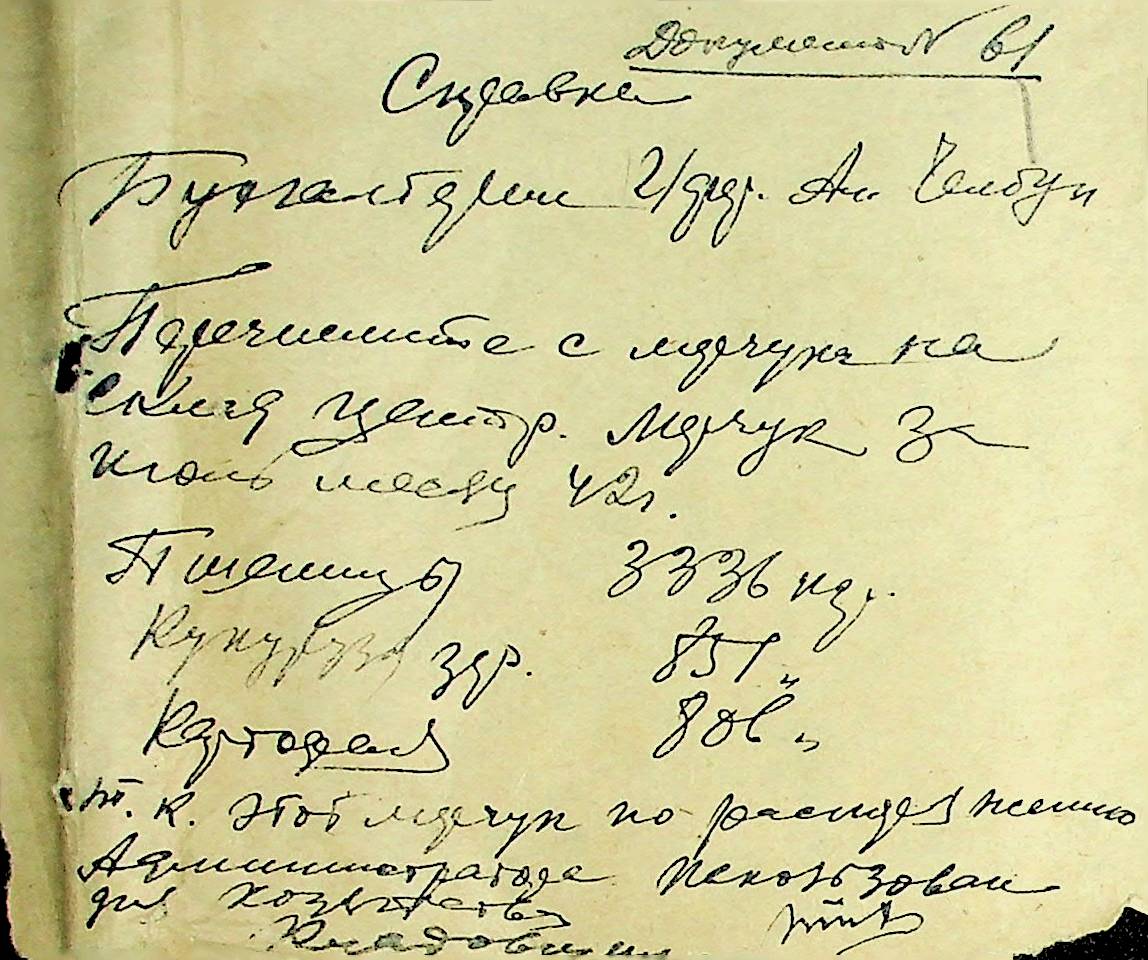 Документ № 61
Справка
Бухгалтерии 2/ Ан.
Перечислите с мерчука на
склад центр. мерчук за
июль месяц 42 г.
Пшеницы 3336 кгр.
Кукуруза зер. 851 "
Картофеля 806 "
т. к. этот мерчук по распоряжению
Администратора использован
для хозяйства
Кладовщик